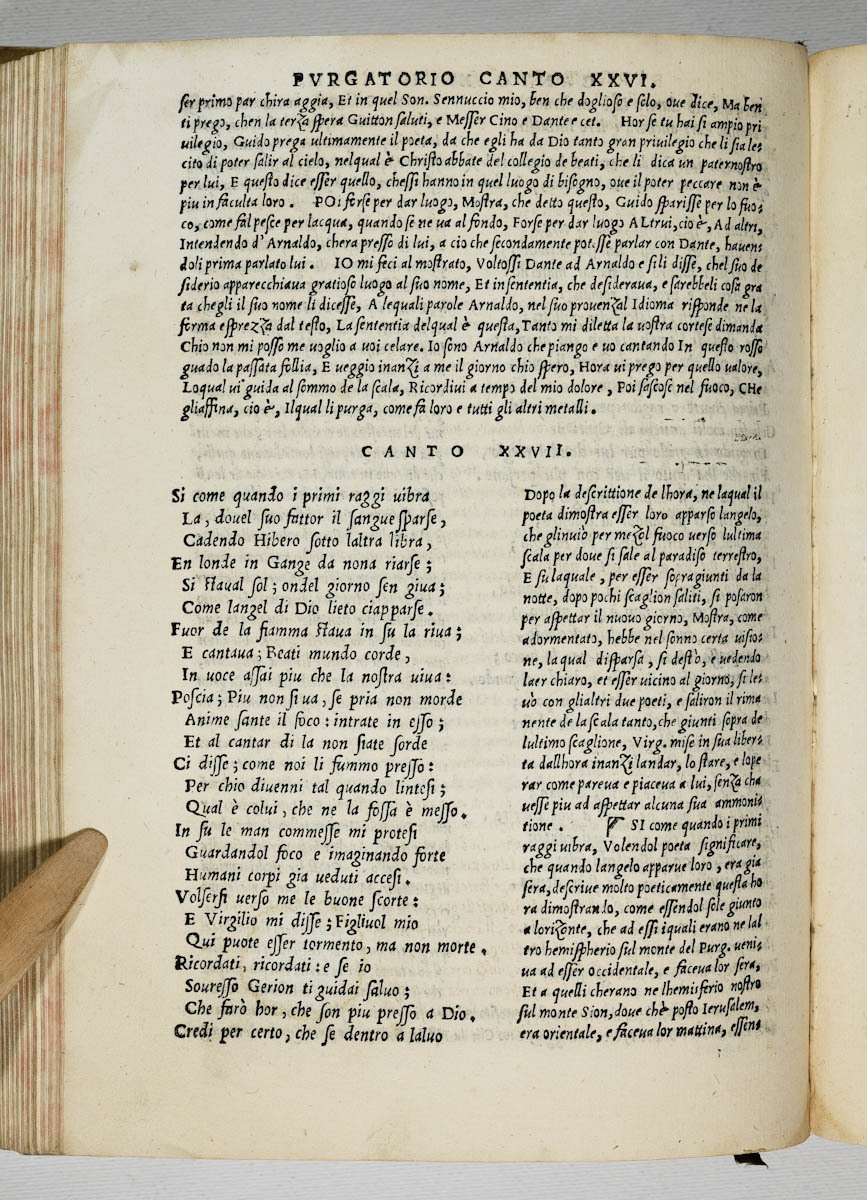 PVRGATORIO CANTO XXVI.
ſer primo par ch'ira aggia, Et in quel Son. Sennuccio mio, ben che doglioſo e ſolo, oue dice, Ma ben
ti prego, chen la terza ſpera Guitton ſaluti, e Meſſer Cino e Dante e cet. Hor ſe tu hai ſi ampio pri
uilegio, Guido prega ultimamente il poeta, da che egli ha da Dio tanto gran priuilegio che li ſia le
cito di poter ſalir al cielo, nelqual è Chriſto abbate del collegio de beati, che li dica un paternoſtro
per lui, E queſto dice eſſer quello, cheſſi hanno in quel luogo di biſogno, oue il poter peccare non è
piu in faculta loro. POi forſe per dar luogo, Moſtra, che detto queſto, Guido ſpariſſe per lo fuo=
co, come fa'l peſce per lacqua, quando ſe ne ua al fondo, Forſe per dar luogo ALtrui, cio è, Ad altri,
Intendendo d'Arnaldo, chera preſſo di lui, a cio che ſecondamente poteſſe parlar con Dante, hauen=
doli prima parlato lui. IO mi feci al moſtrato, Voltoſſi Dante ad Arnaldo e ſi li diſſe, chel ſuo de
ſiderio apparecchiaua gratioſo luogo al ſuo nome, Et in ſententia, che deſideraua, e ſarebbeli coſa gra
ta chegli il ſuo nome li diceſſe, A lequali parole Arnaldo, nel ſuo prouenzal Idioma riſponde ne la
forma eſprezza dal teſto, La ſententia delqual è queſta, Tanto mi diletta la uoſtra corteſe dimanda
Chio non mi poſſo me uoglio a uoi celare. Io ſono Arnaldo che piango e uo cantando In queſto roſſo
guado la paſſata follia, E ueggio inanzi a me il giorno chio ſpero, Hora ui prego per quello ualore,
Loqual ui guida al ſommo de la ſcala, Ricordiui a tempo del mio dolore, Poi ſaſcoſe nel fuoco, CHe
gliaffina, cio è, Ilqual li purga, come fa loro e tutti gli altri metalli.
CANTO XXVII.
Si come quando i primi raggi uibra
La, douel ſuo fattor il ſangue ſparſe,
Cadendo Hibero ſotto laltra libra,
En londe in Gange da nona riarſe;
Si ſtaual ſol; ondel giorno ſen giua;
Come langel di Dio lieto ciapparſe.
Fuor de la fiamma ſtaua in ſu la riua;
E cantaua; Beati mundo corde,
In uoce aſſai piu che la noſtra uiua:
Poſcia; Piu non ſi ua, ſe pria non morde
Anime ſante il foco: intrate in eſſo;
Et al cantar di la non ſiate ſorde
Ci diſſe; come noi li fummo preſſo:
Per chio diuenni tal quando linteſi;
Qual è colui, che ne la foſſa è meſſo.
In ſu le man commeſſe mi proteſi
Guardandol foco e imaginando forte
Humani corpi gia ueduti acceſi.
Volſerſi uerſo me le buone ſcorte:
E Virgilio mi diſſe; Figliuol mio
Qui puote eſſer tormento, ma non morte.
Ricordati, ricordati: e ſe io
Soureſſo Gerion ti guidai ſaluo;
Che farò hor, che ſon piu preſſo a Dio.
Credi per certo, che ſe dentro a laluo
Dopo la deſcrittione de lhora, ne laqual il
poeta dimoſtra eſſer loro apparſo langelo,
che glinuiò per mezol fuoco uerſo lultima
ſcala per doue ſi ſale al paradiſo terreſtro,
E ſu laquale, per eſſer ſopragiunti da la
notte, dopo pochi ſcaglion ſaliti, ſi poſaron
per aſpettar il nuouo giorno, Moſtra, come
adormentato, hebbe nel ſonno certa uiſio=
ne, la qual diſparſa, ſi deſtò, e uedendo
laer chiaro, et eſſer uicino al giorno, ſi le=
uò con glialtri due poeti, e ſaliron il rima
nente de la ſcala tanto, che giunti ſopra de
lultimo ſcaglione, Virg. miſe in ſua liber=
ta dallhora inanzi landar, lo ſtare, e lope
rar come pareua e piaceua a lui, ſenza cha
ueſſe piu ad aſpettar alcuna ſua ammoni=
tione. SI come quando i primi
raggi uibra, Volendol poeta ſignificare,
che quando langelo apparue loro, era gia
ſera, deſcriue molto poeticamente queſta ho
ra dimoſtrando, come eſſendol ſole giunto
a lorizonte, che ad eſſi iquali erano ne lal
tro hemiſpherio ſul monte del Purg. ueni=
ua ad eſſer occidentale, e faceua lor ſera,
Et a quelli cherano ne lhemiſferio noſtro
ſul monte Sion, doue chè poſto Ieruſalem,
era orientale, e faceua lor mattina, eſſen=